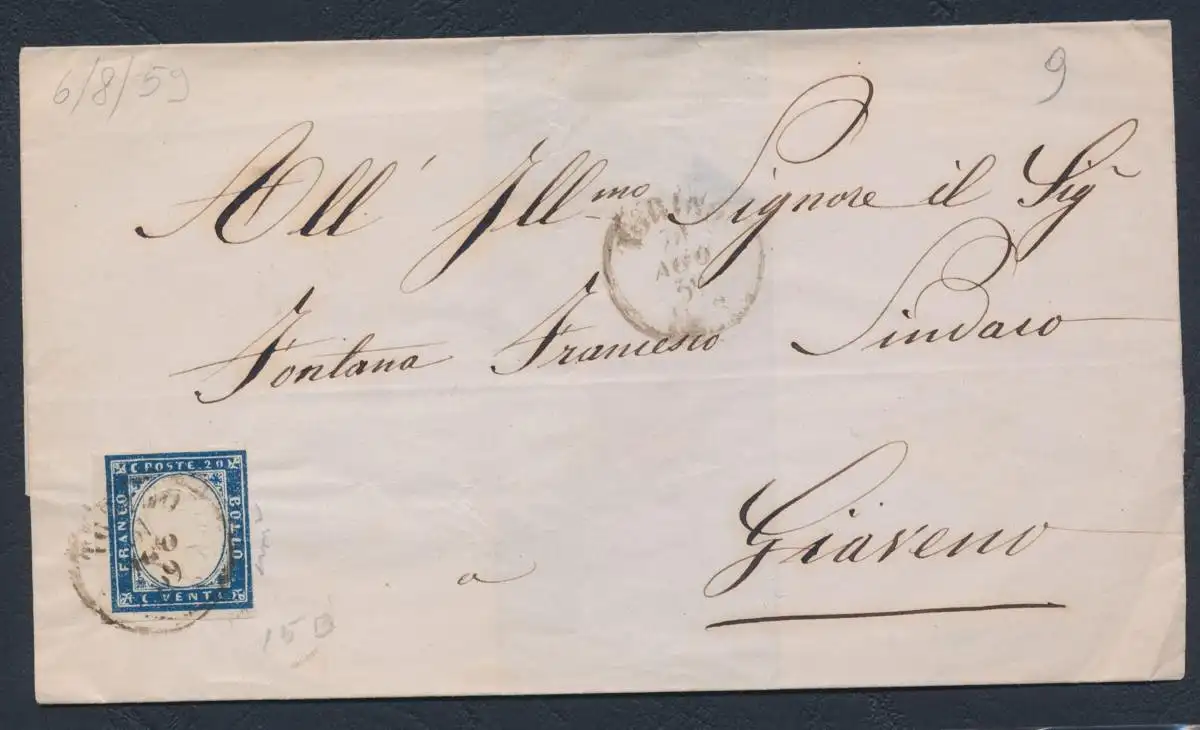 6/8/59
9
All' Ill.mo Signore il Sigr
TORINO
AGO
59
Fontana Francesco Sindaco
C. POSTE. 20
FRANCO
BOLLO
C. VENTI
a Giaveno
15 B